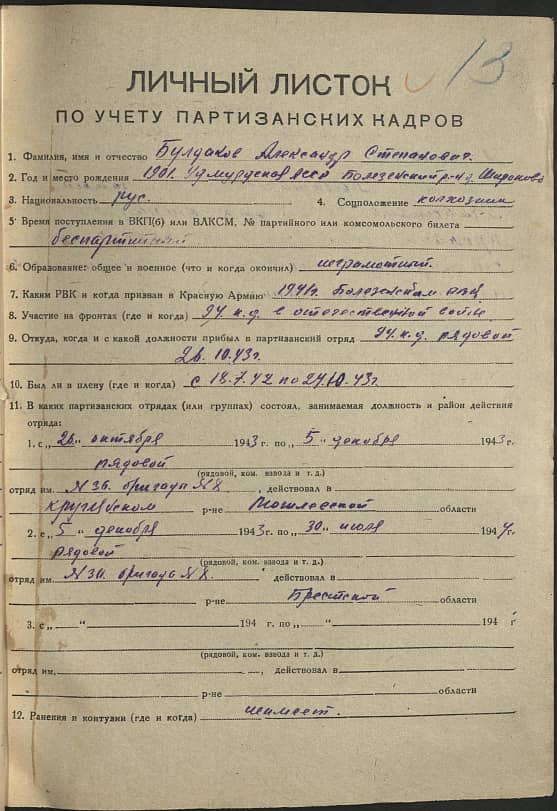 13
ЛИЧНЫЙ ЛИСТОК
ПО УЧЕТУ ПАРТИЗАНСКИХ КАДРОВ
1. Фамилия, имя и отчество Булдаков Александр Степанович.
2. Год и место рождения 1901. Удмуртская АССР Болезенский р-н д. Широково
3. Национальность рус. 4. Соцположение колхозник
5. Время поступления в ВКП(б) или ВЛКСМ, № партийного или комсомольского билета
беспартийный
6. Образование: общее и военное (что и когда окончил) неграмотный.
7. Каким РВК и когда призван в Красную Армию 1941г. Болезенским РВК
8. Участие на фронтах (где и когда) 94. к.д. в отечественной войне
9. Откуда, когда и с какой должности прибыл в партизанский отряд 94. к.д. рядовой
26.10.43г.
10. Был ли в плену (где и когда) с 18.7.42 по 24.10.43г.
11. В каких партизанских отрядах (или группах) состоял, занимаемая должность и район действия
отряда:
1. с „26" октября 1943г. по „5" декабря 1943г.
рядовой
(рядовой, ком. взвода и т. д.)
отряд им. N 36. бригады N 8, действовал в
Круглянском р-не Могилевской области
2. с „5" декабря 1943г. по „30" июля 1944г.
рядовой
(рядовой, ком. взвода и т. д.)
отряд им. N 36. бригады N 8. действовал в
р-не Брестской области
3. с „ " 194 г. по „ " 194 г
(рядовой, ком. взвода и т. д.)
отряд им. , действовал в
р-не области
12. Ранения и контузии (где и когда) не имеет.